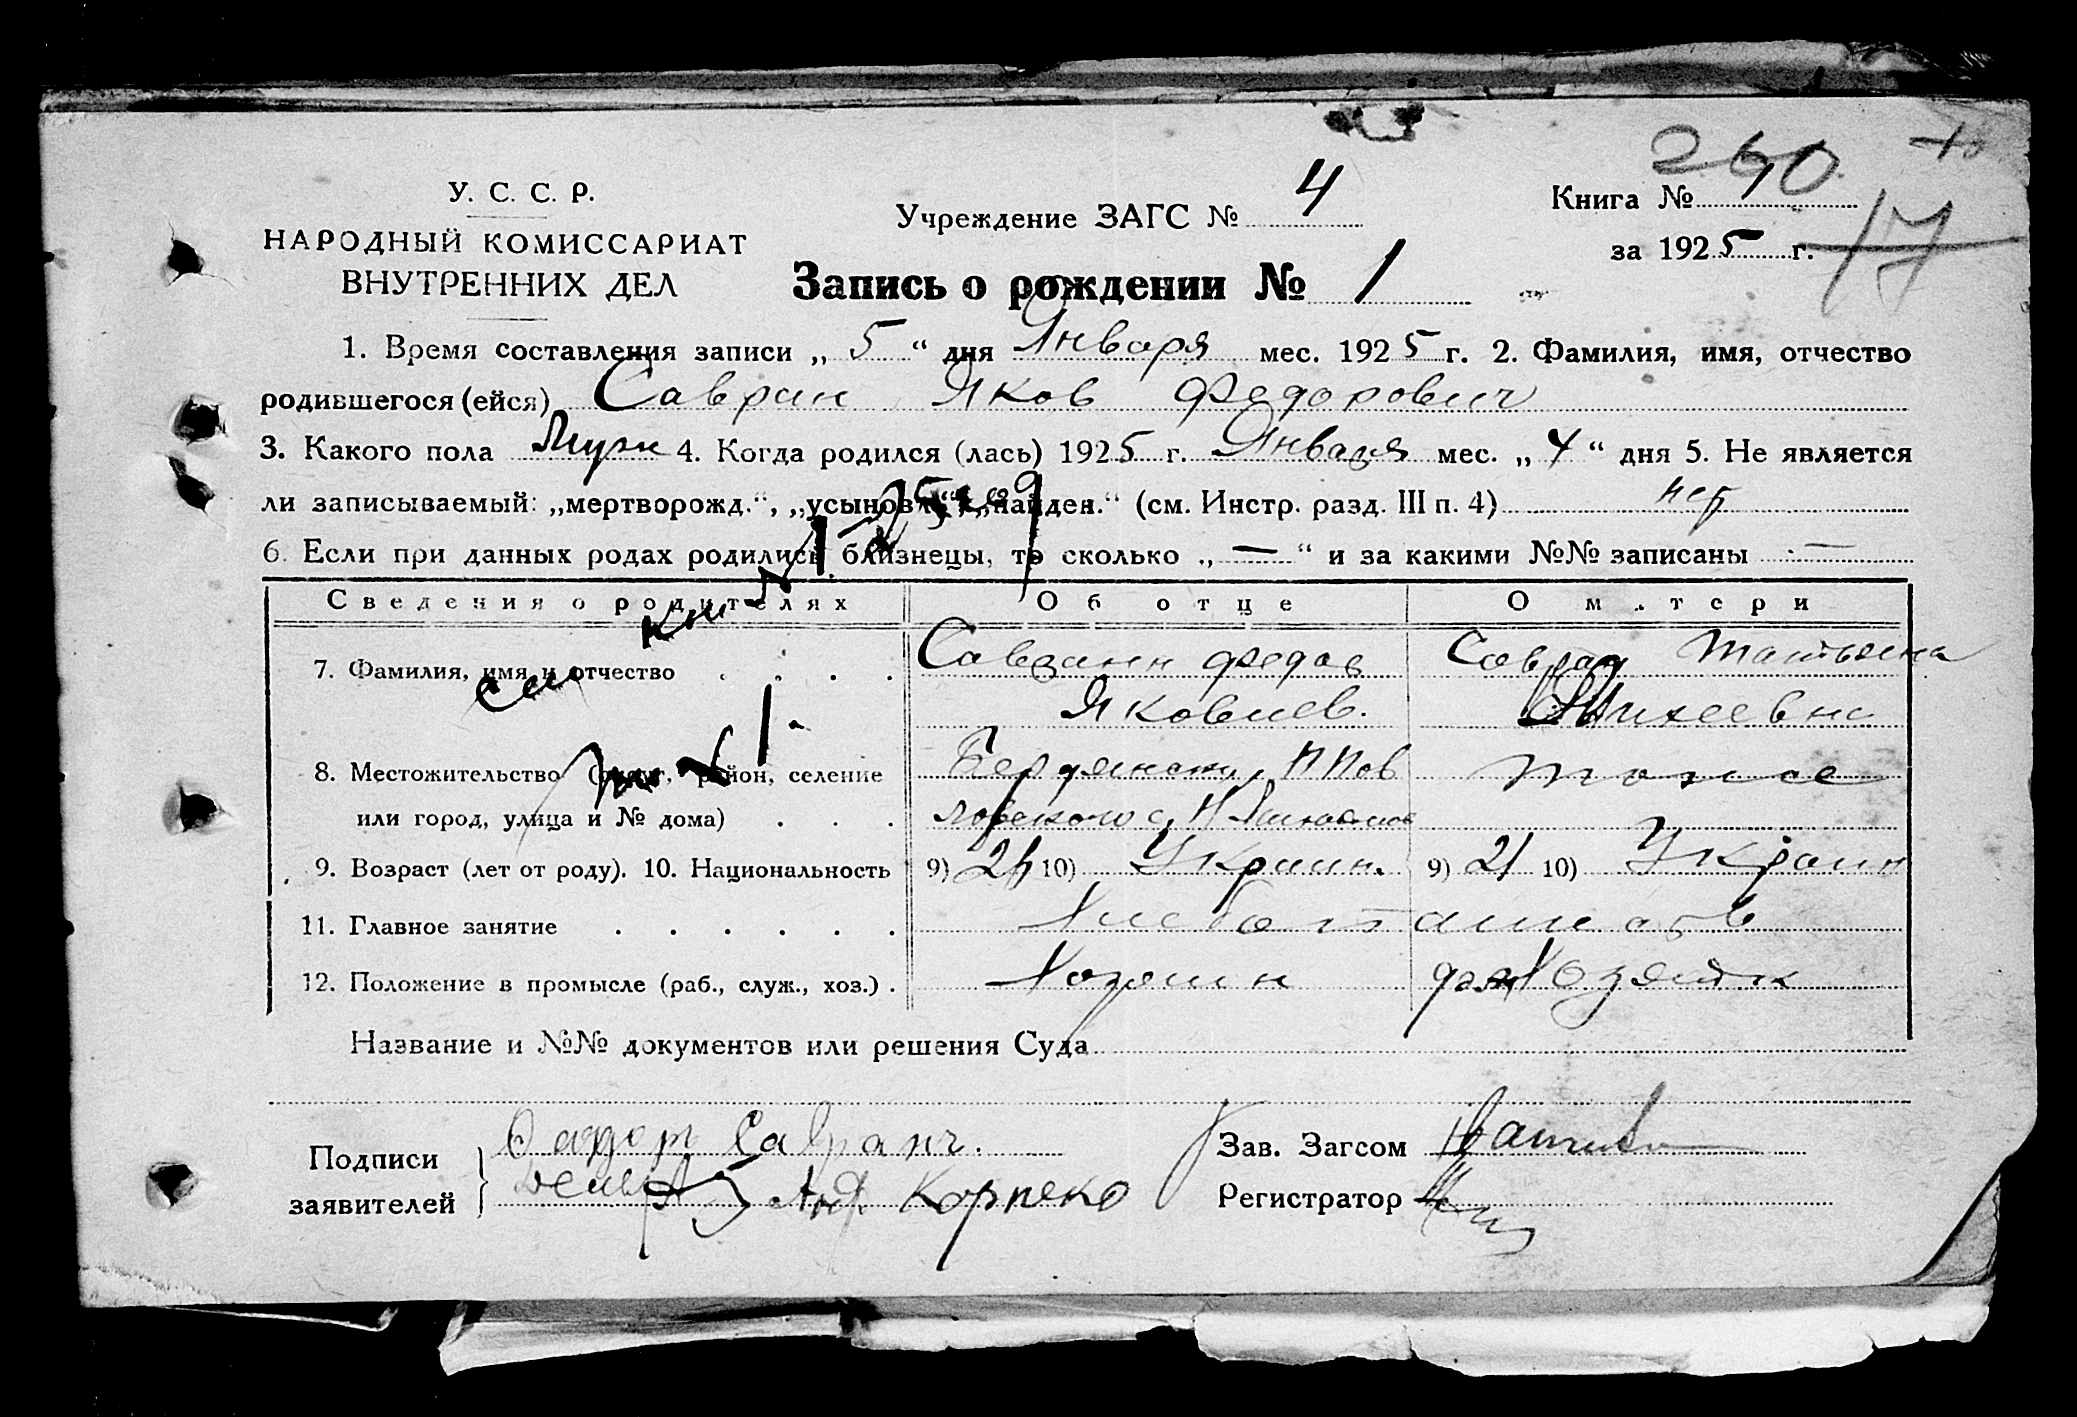 260
У. С. С. Р.
НАРОДНЫЙ КОМИССАРИАТ
ВНУТРЕННИХ ДЕЛ
Учреждение ЗАГС № 4
Книга №
17
за 1925 г.
Запись о рождении № 1
1. Время составления записи „ 5 “ дня Января мес. 1925 г. 2. Фамилия, имя, отчество
родившегося (ейся) Савран Яков Федорович
3. Какого пола Муж 4. Когда родился (лась) 1925 г. Января мес. „ 4 “ дня 5. Не является
ли записываемый: „мертворожд.“, „усыновл.“, „найден.“ (см. Инстр. разд. III п. 4) нет
6. Если при данных родах родились близнецы, то сколько „ — “ и за какими №№ записаны —
Сведения о родителях Об отце О матери
7. Фамилия, имя и отчество Савранн Федор Савран Татьяна
Яковлев. Михеевна
8. Местожительство (округ, район, селение Бердянски, тоже
или город, улица и № дома)
9. Возраст (лет от роду). 10. Национальность 9) 10) Украин. 9) 21 10) Украин
11. Главное занятие Хлебопашество
12. Положение в промысле (раб., служ., хоз.) Хозяин
Название и №№ документов или решения Суда
Подписи
заявителей
Савранъ.
Корпеко
Зав. Загсом
Регистратор